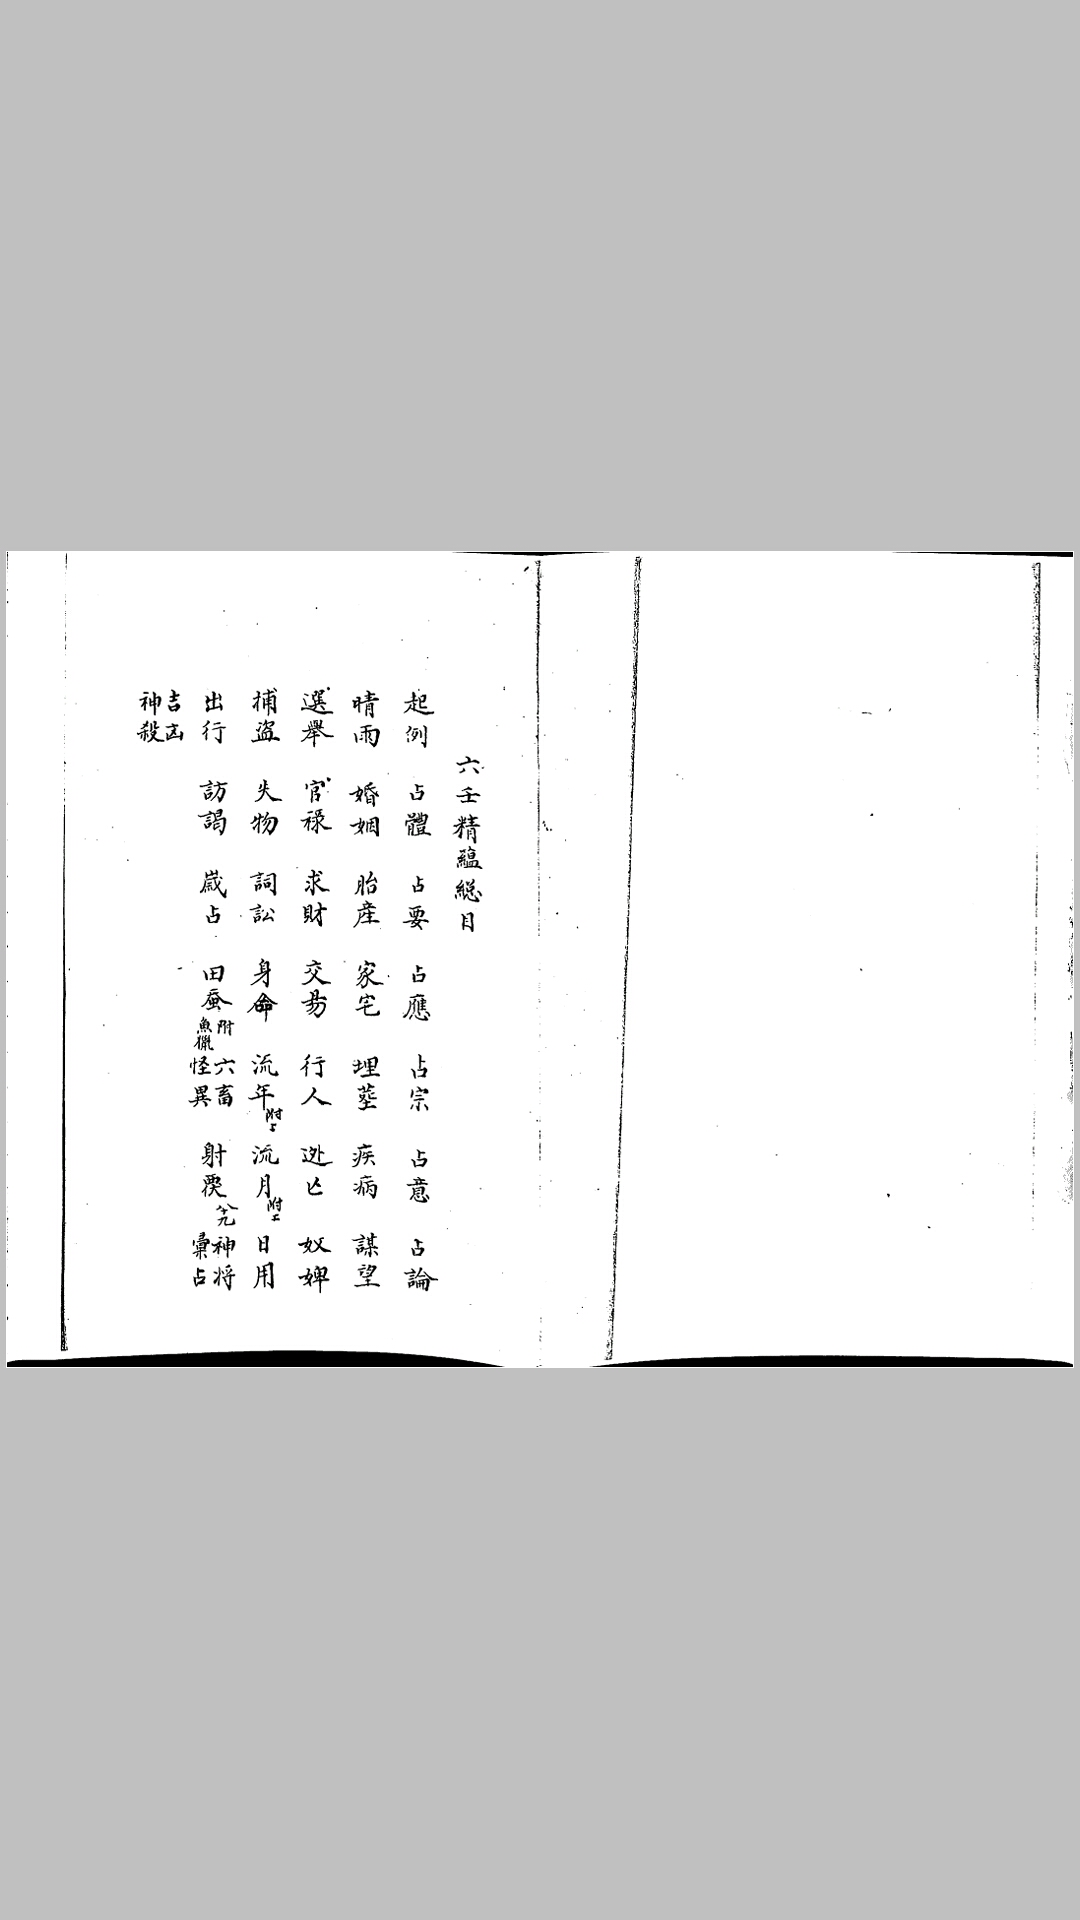 六壬精蘊総目
起例 占體 占要 占應 占宗 占意 占論
晴雨 婚姻 胎産 家宅 埋塟 疾病 謀望
選舉 官祿 求財 交易 行人 逃亡 奴婢
捕盜 失物 詞訟 身命 流年附上 流月附上 日用
出行 訪謁 歲占 田蚕附魚獵 六畜怪異 射覆 神将彙占
吉凶神殺